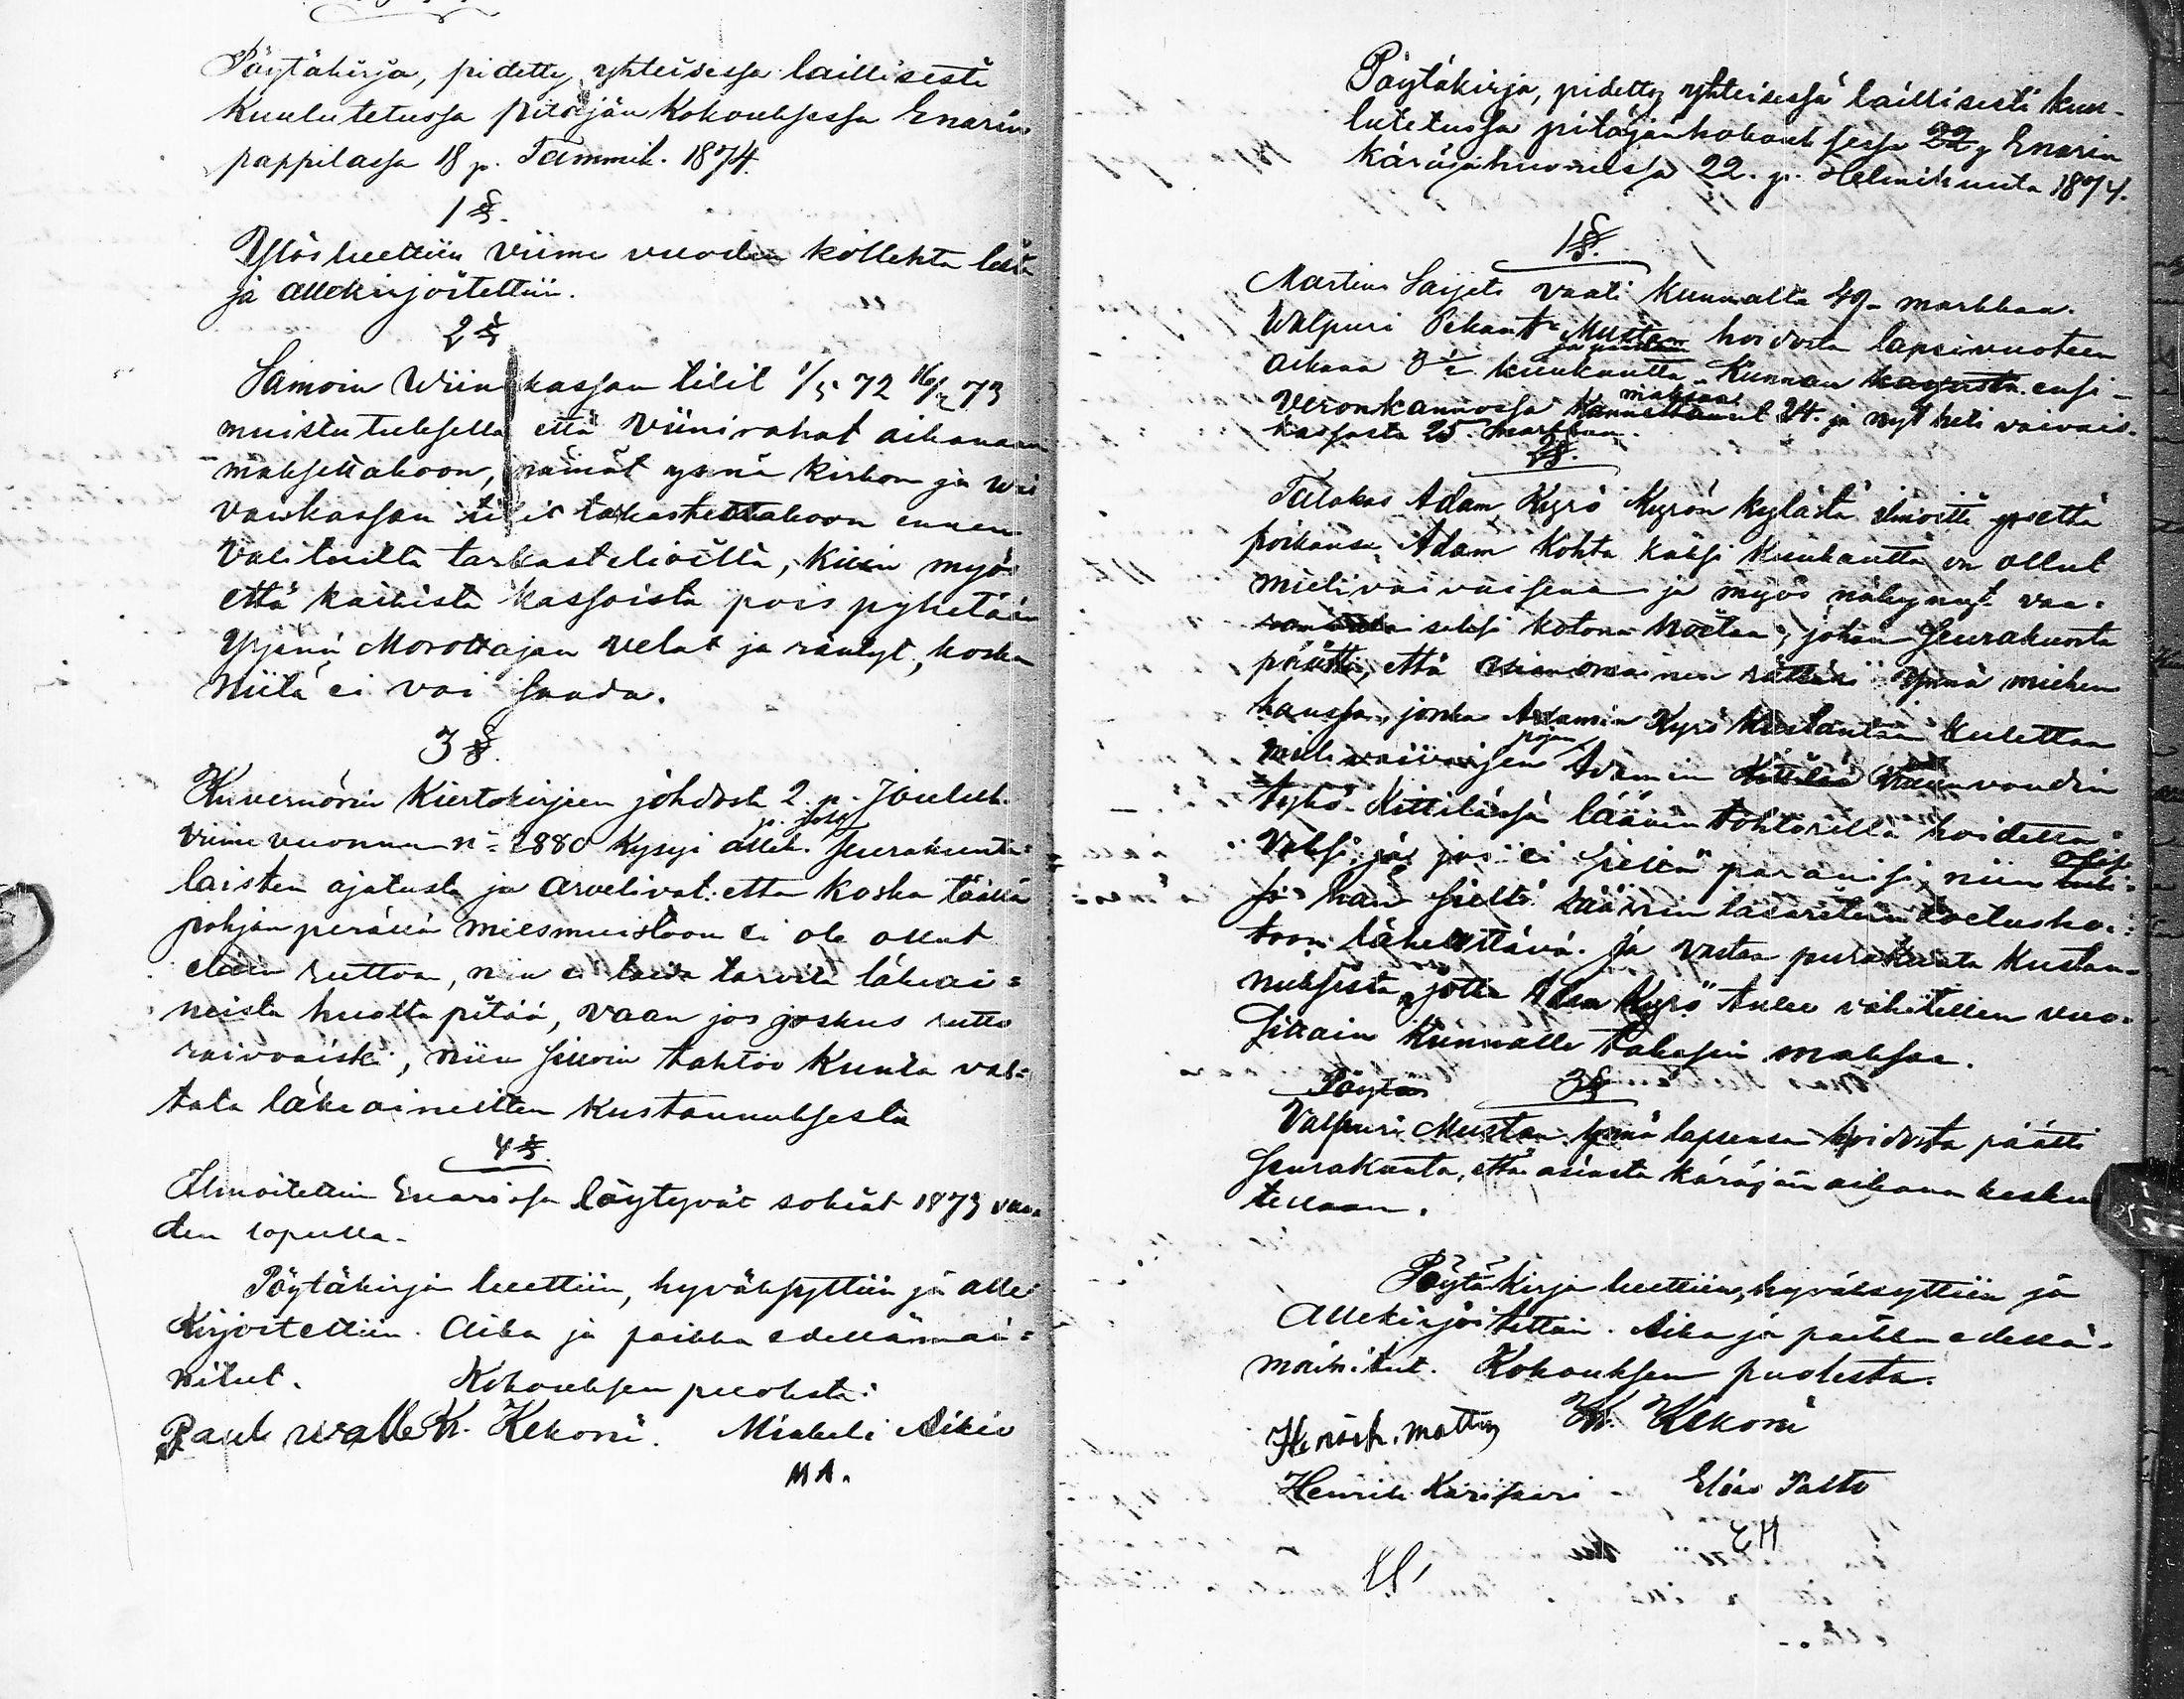 Pöytäkirja, pidetty yhteisessä laillisesti
kuulutetussa pitäjän kokouksessa Enarin
pappilassa 18 p. Tammik. 1874.
1 §.
Ylösluettiin viime vuoden kollekta
ja allekirjoitettiin.
2 §
Samoin Wiinikassan tilit 1/5 72
muistutuksella että viinirahat aikanaan
maksettakoon, nämät ynnä kirkon ja
vaiskassan tilit tarkastettakoon ennen
valituilta tarkastelioilta, kuin myös
että kaikista kassoista pois pyhetään
Yrjänä Morottajan velat ja räntyt, koska
niitä ei voi saada.
3 §.
Kuvernörin kiertokirjeen johdosta 2. p. Jouluk.
viime vuonna n= 2880 kysyi allek. seurakunta=
laisten ajatusta ja arvelivat että koska täällä
pohjan perällä miesmuistoon ei ole ollut
eläin ruttoa, niin ei tarvita lääkeai=
neista huolta pitää, vaan jos joskus rutto
raivoaisi, niin silloin tahtoo kunta vas=
tata lääkeaineitten kustannuksesta
4 §.
Ilmoitettiin Enarissa löytyvät sokiat 1873 vuo
den lopulla.
Pöytäkirja luettiin, hyväksyttiin ja alle
kirjoitettiin. Aika ja paikka edellämai=
nitut. Kokouksen puolesta:
Paul walle K. Kekoni. Mikkeli Aikio
MA.
Pöytäkirja, pidetty yhteisessä laillisesti kuu-
lutetussa pitäjänkokouksessa Enarin
käräjähuoneessa 22. p. Helmikuuta 1874.
1 §.
Martin Saijets vaati kunnalta 49- markkaa
Walpuri Mustan hoidosta lapsivuoteen
aikana kuukautta. Kunnan ensi-
veronkannossa maksaa 24. ja nyt heti vaivais-
kassasta 25. markkaa.
2 §.
Talokas Adam Kyrö Kyrön kylästä ilmoitti että
poikansa Adam kohta kaksi kuukautta on ollut
mielivaivaisena ja myös näkynyt vaa-
seksi kotona hoitaa, johon Seurakunta
päätti, että ynnä miehen
kanssa, jonka Adamin Kyrö kustantaa kulettaa
mielivaivaisen pojan Adamin Ruununvoudin
tykö Kittilässä läänin tohtorilla hoidetta-
vaksi, ja jos ei siellä paranisi, niin olisi
hän sieltä läänin lasarettiin koetushoi=
toon lähetettävä. Ja vastaa seurakunta kustan-
nuksista, jotka Adam Kyrö tulee vähitellen vuo-
sittain kunnalle takasin maksaa.
3 §
Valpuri Mustan ynnä lapsensa hoidosta päätti
Seurakunta, että asiasta käräjän aikana kesku
tellaan.
Pöytäkirja luettiin, hyväksyttiin ja
allekirjoitettiin. Aika ja paikka edellä-
mainitut. Kokouksen puolesta.
Henrik. mattus K. Kekoni
Henrik Elias Salto
EH